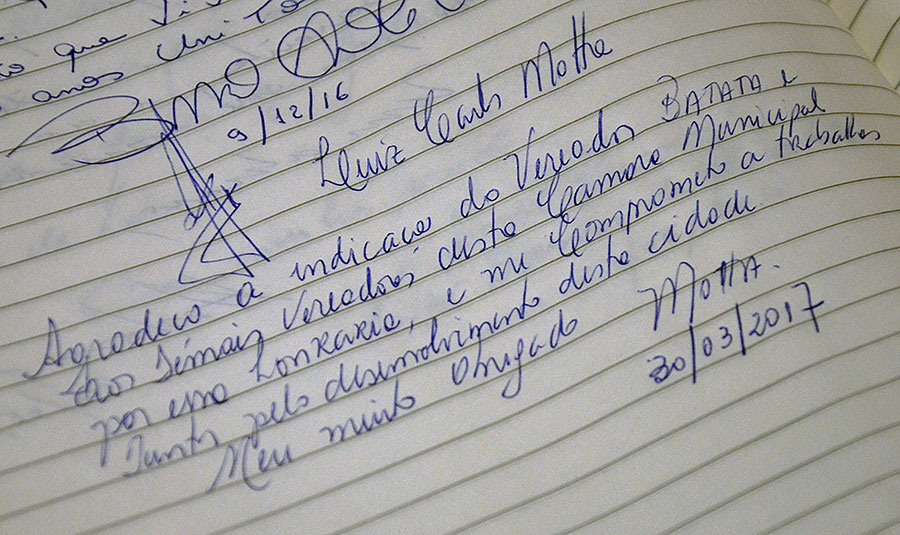 ão que
anos
9/12/16
Luiz Carlos Motta
Agradeço a indicação do Vereador BATATA e
aos demais Vereadores desta Camara Municipal
por essa honraria, e me comprometo a trabalhar
junto pelo desenvolvimento desta cidade.
Meu muito obrigado MOTTA.
30/03/2017